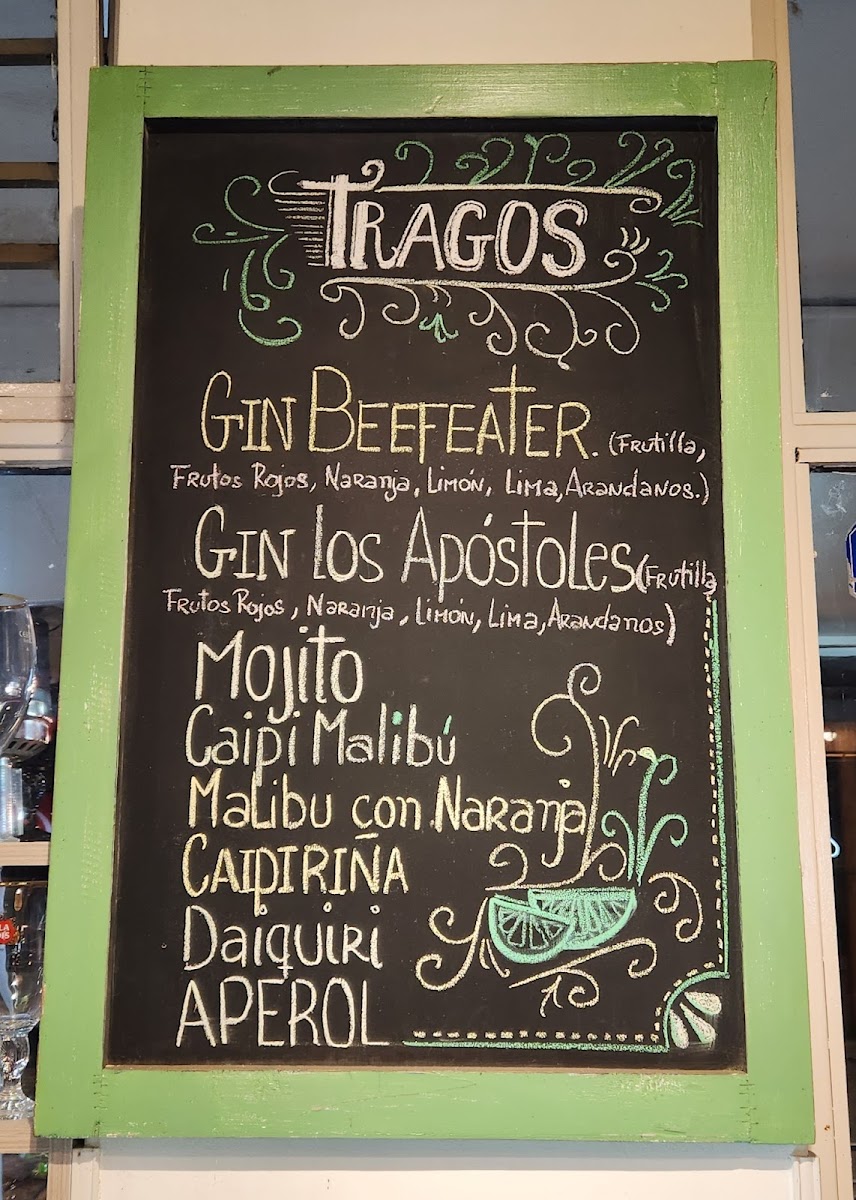 TRAGOS
GIN BEEFEATER. (FRUTILLA,
FRUTOS ROJOS, NARANJA, LIMÓN, LIMA, ARANDANOS.)
GIN LOS APÓSTOLES (FRUTILLA,
FRUTOS ROJOS, NARANJA, LIMÓN, LIMA, ARANDANOS)
Mojito
Caipi Malibú
Malibu con Naranja
CAIPIRIÑA
Daiquiri
APEROL